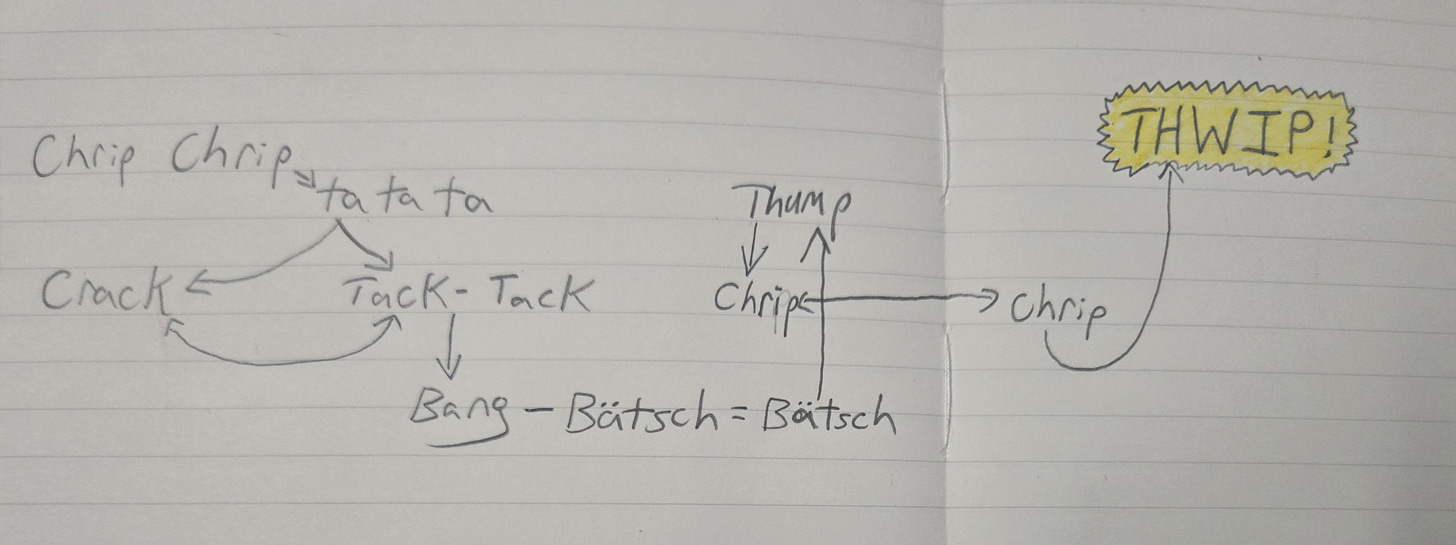 THWIP!
Chrip Chrip
ta ta ta
Thump
Crack
Tack - Tack
Chrip
Chrip
Bang - Bätsch = Bätsch